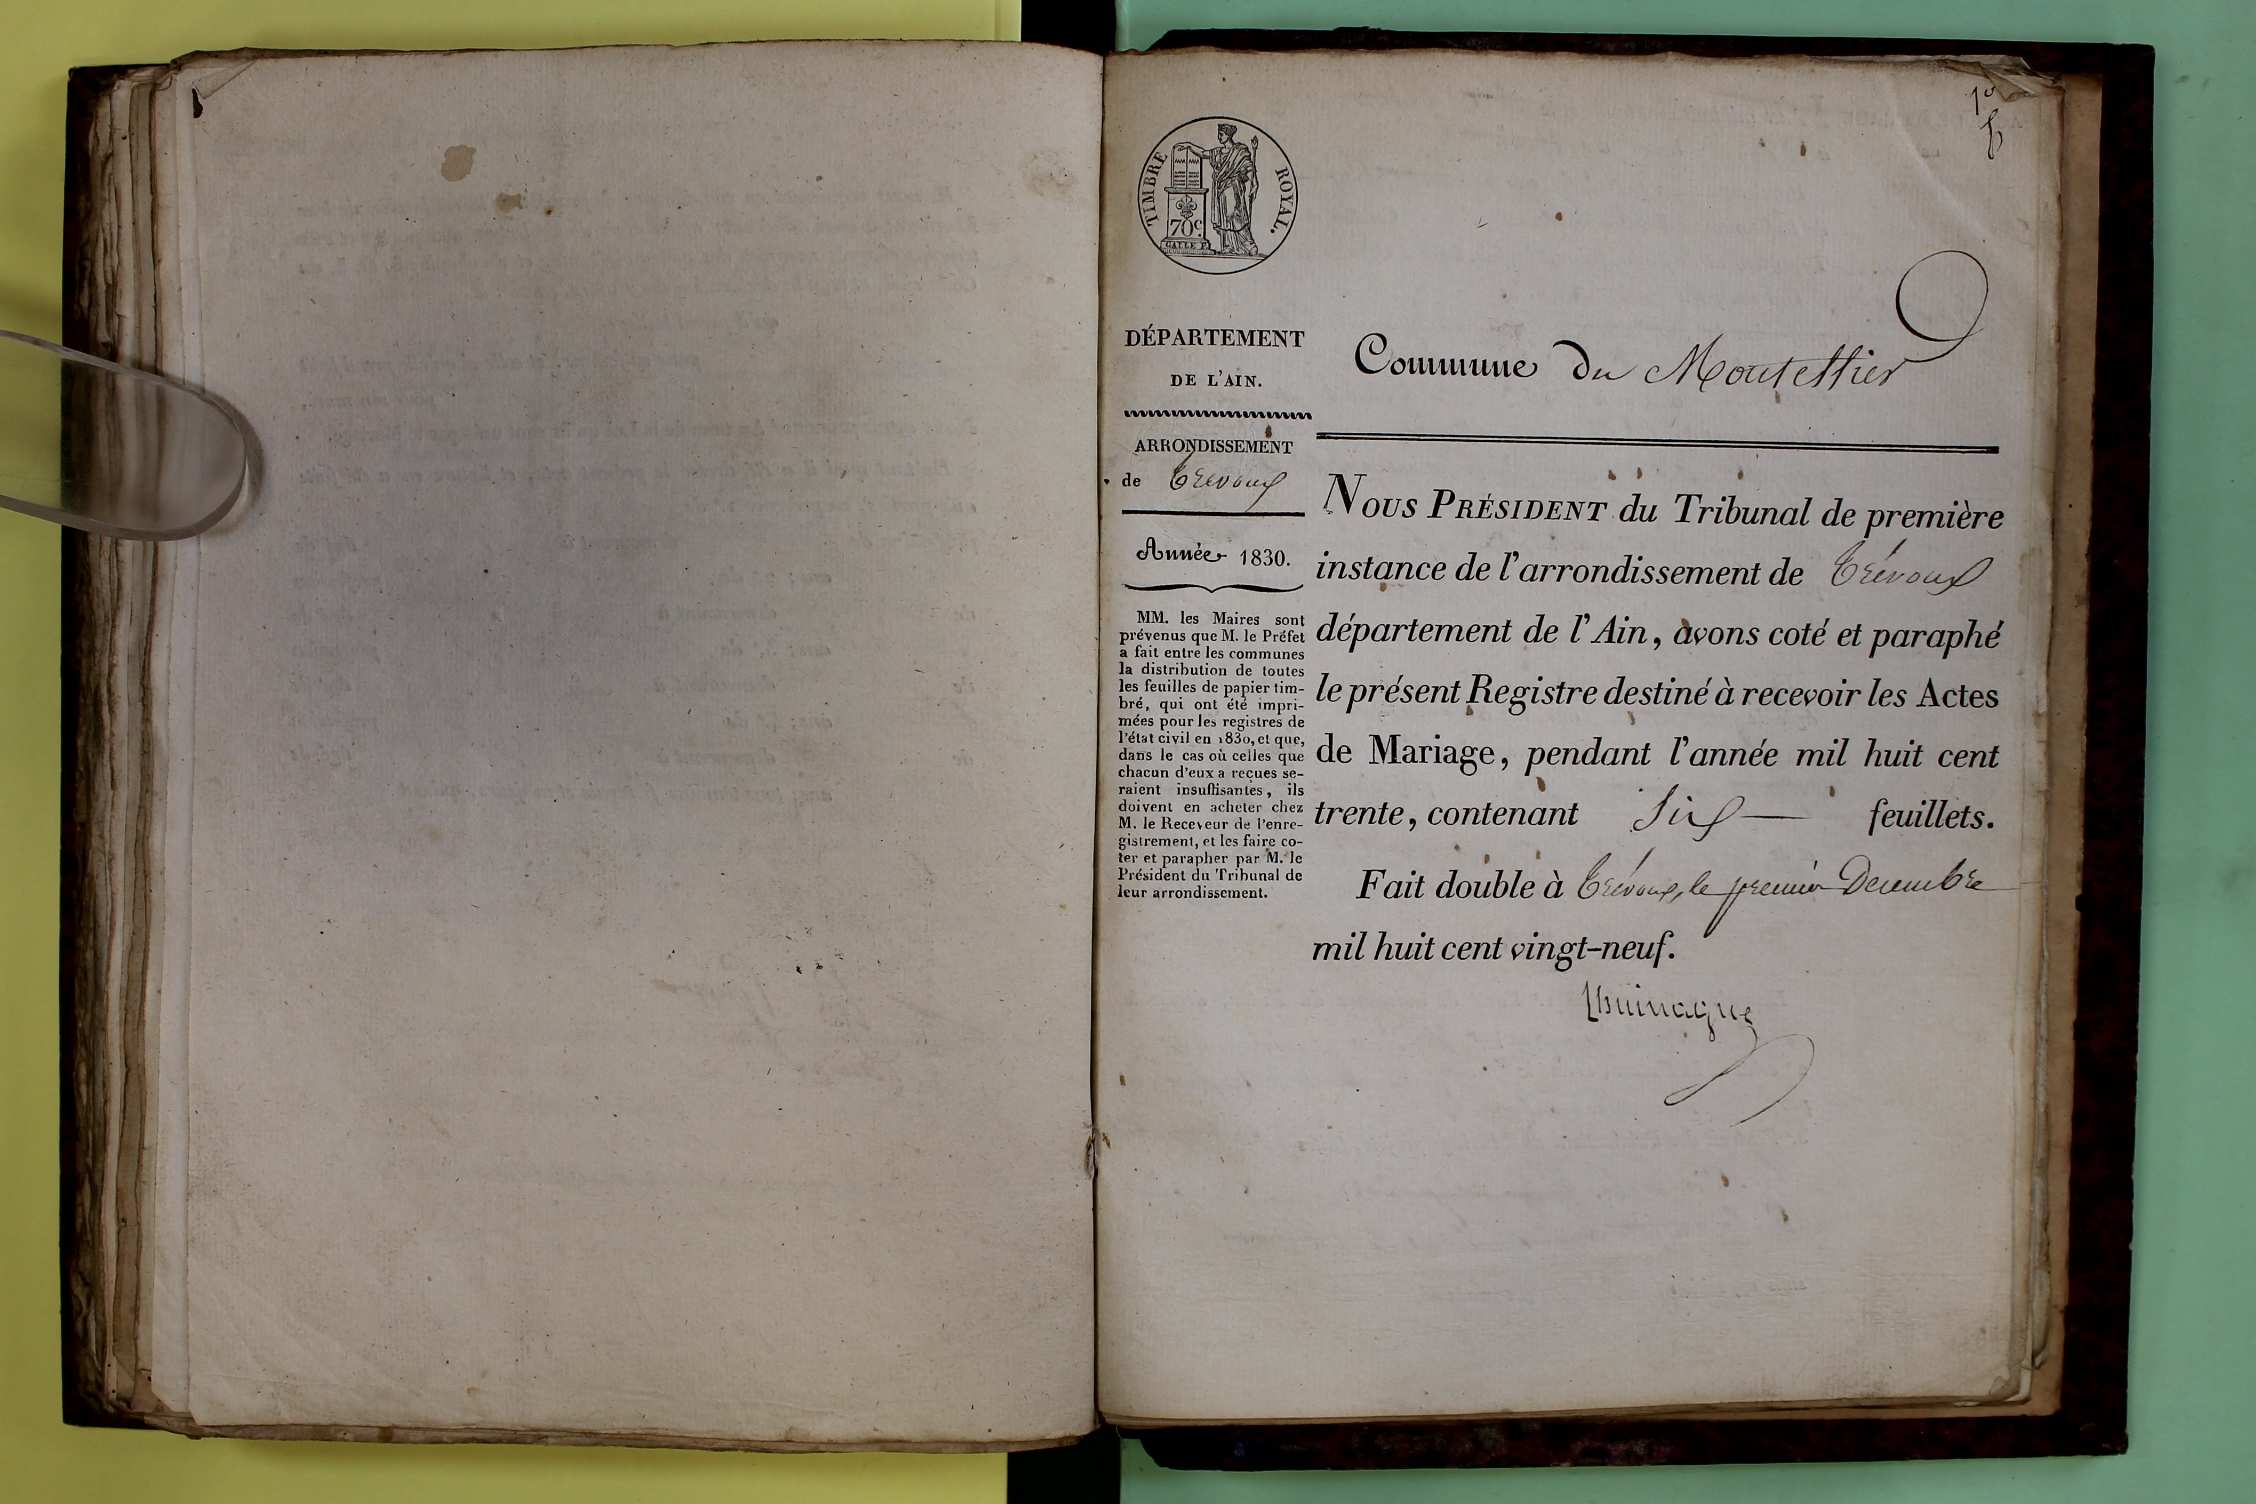 1er
TIMBRE ROYAL.
70c.
GALLE F.
DÉPARTEMENT
DE L'AIN.
ARRONDISSEMENT
de Trévoux
Année 1830.
MM. les Maires sont
prévenus que M. le Préfet
a fait entre les communes
la distribution de toutes
les feuilles de papier tim-
bré, qui ont été impri-
mées pour les registres de
l'état civil en 1830, et que,
dans le cas où celles que
chacun d'eux a reçues se-
raient insuffisantes, ils
doivent en acheter chez
M. le Receveur de l'enre-
gistrement, et les faire co-
ter et parapher par M. le
Président du Tribunal de
leur arrondissement.
Commune du Montellier
NOUS PRÉSIDENT du Tribunal de première
instance de l'arrondissement de Trévoux
département de l'Ain, avons coté et paraphé
le présent Registre destiné à recevoir les Actes
de Mariage, pendant l'année mil huit cent
trente, contenant Six — feuillets.
Fait double à Trévoux, le premier Decembre
mil huit cent vingt-neuf.